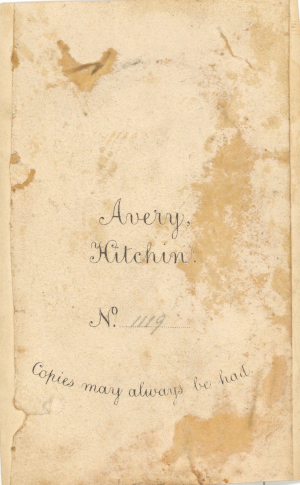 Avery,
Hitchin.
No. 1119
Copies may always be had.